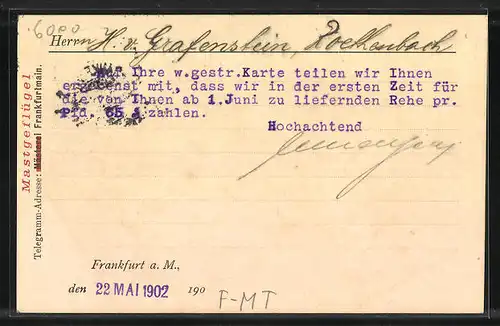 6000
Herrn H. v. Grafenstein,
Auf Ihre w.gestr.Karte teilen wir Ihnen
ergebenst mit, dass wir in der ersten Zeit für
die von Ihnen ab 1.Juni zu liefernden Rehe pr.
Pfd. 65 zahlen.
Hochachtend
Mastgeflügel
Telegramm-Adresse: Mästerei Frankfurtmain.
Frankfurt a. M.,
den 22 MAI 1902 190
F-MT